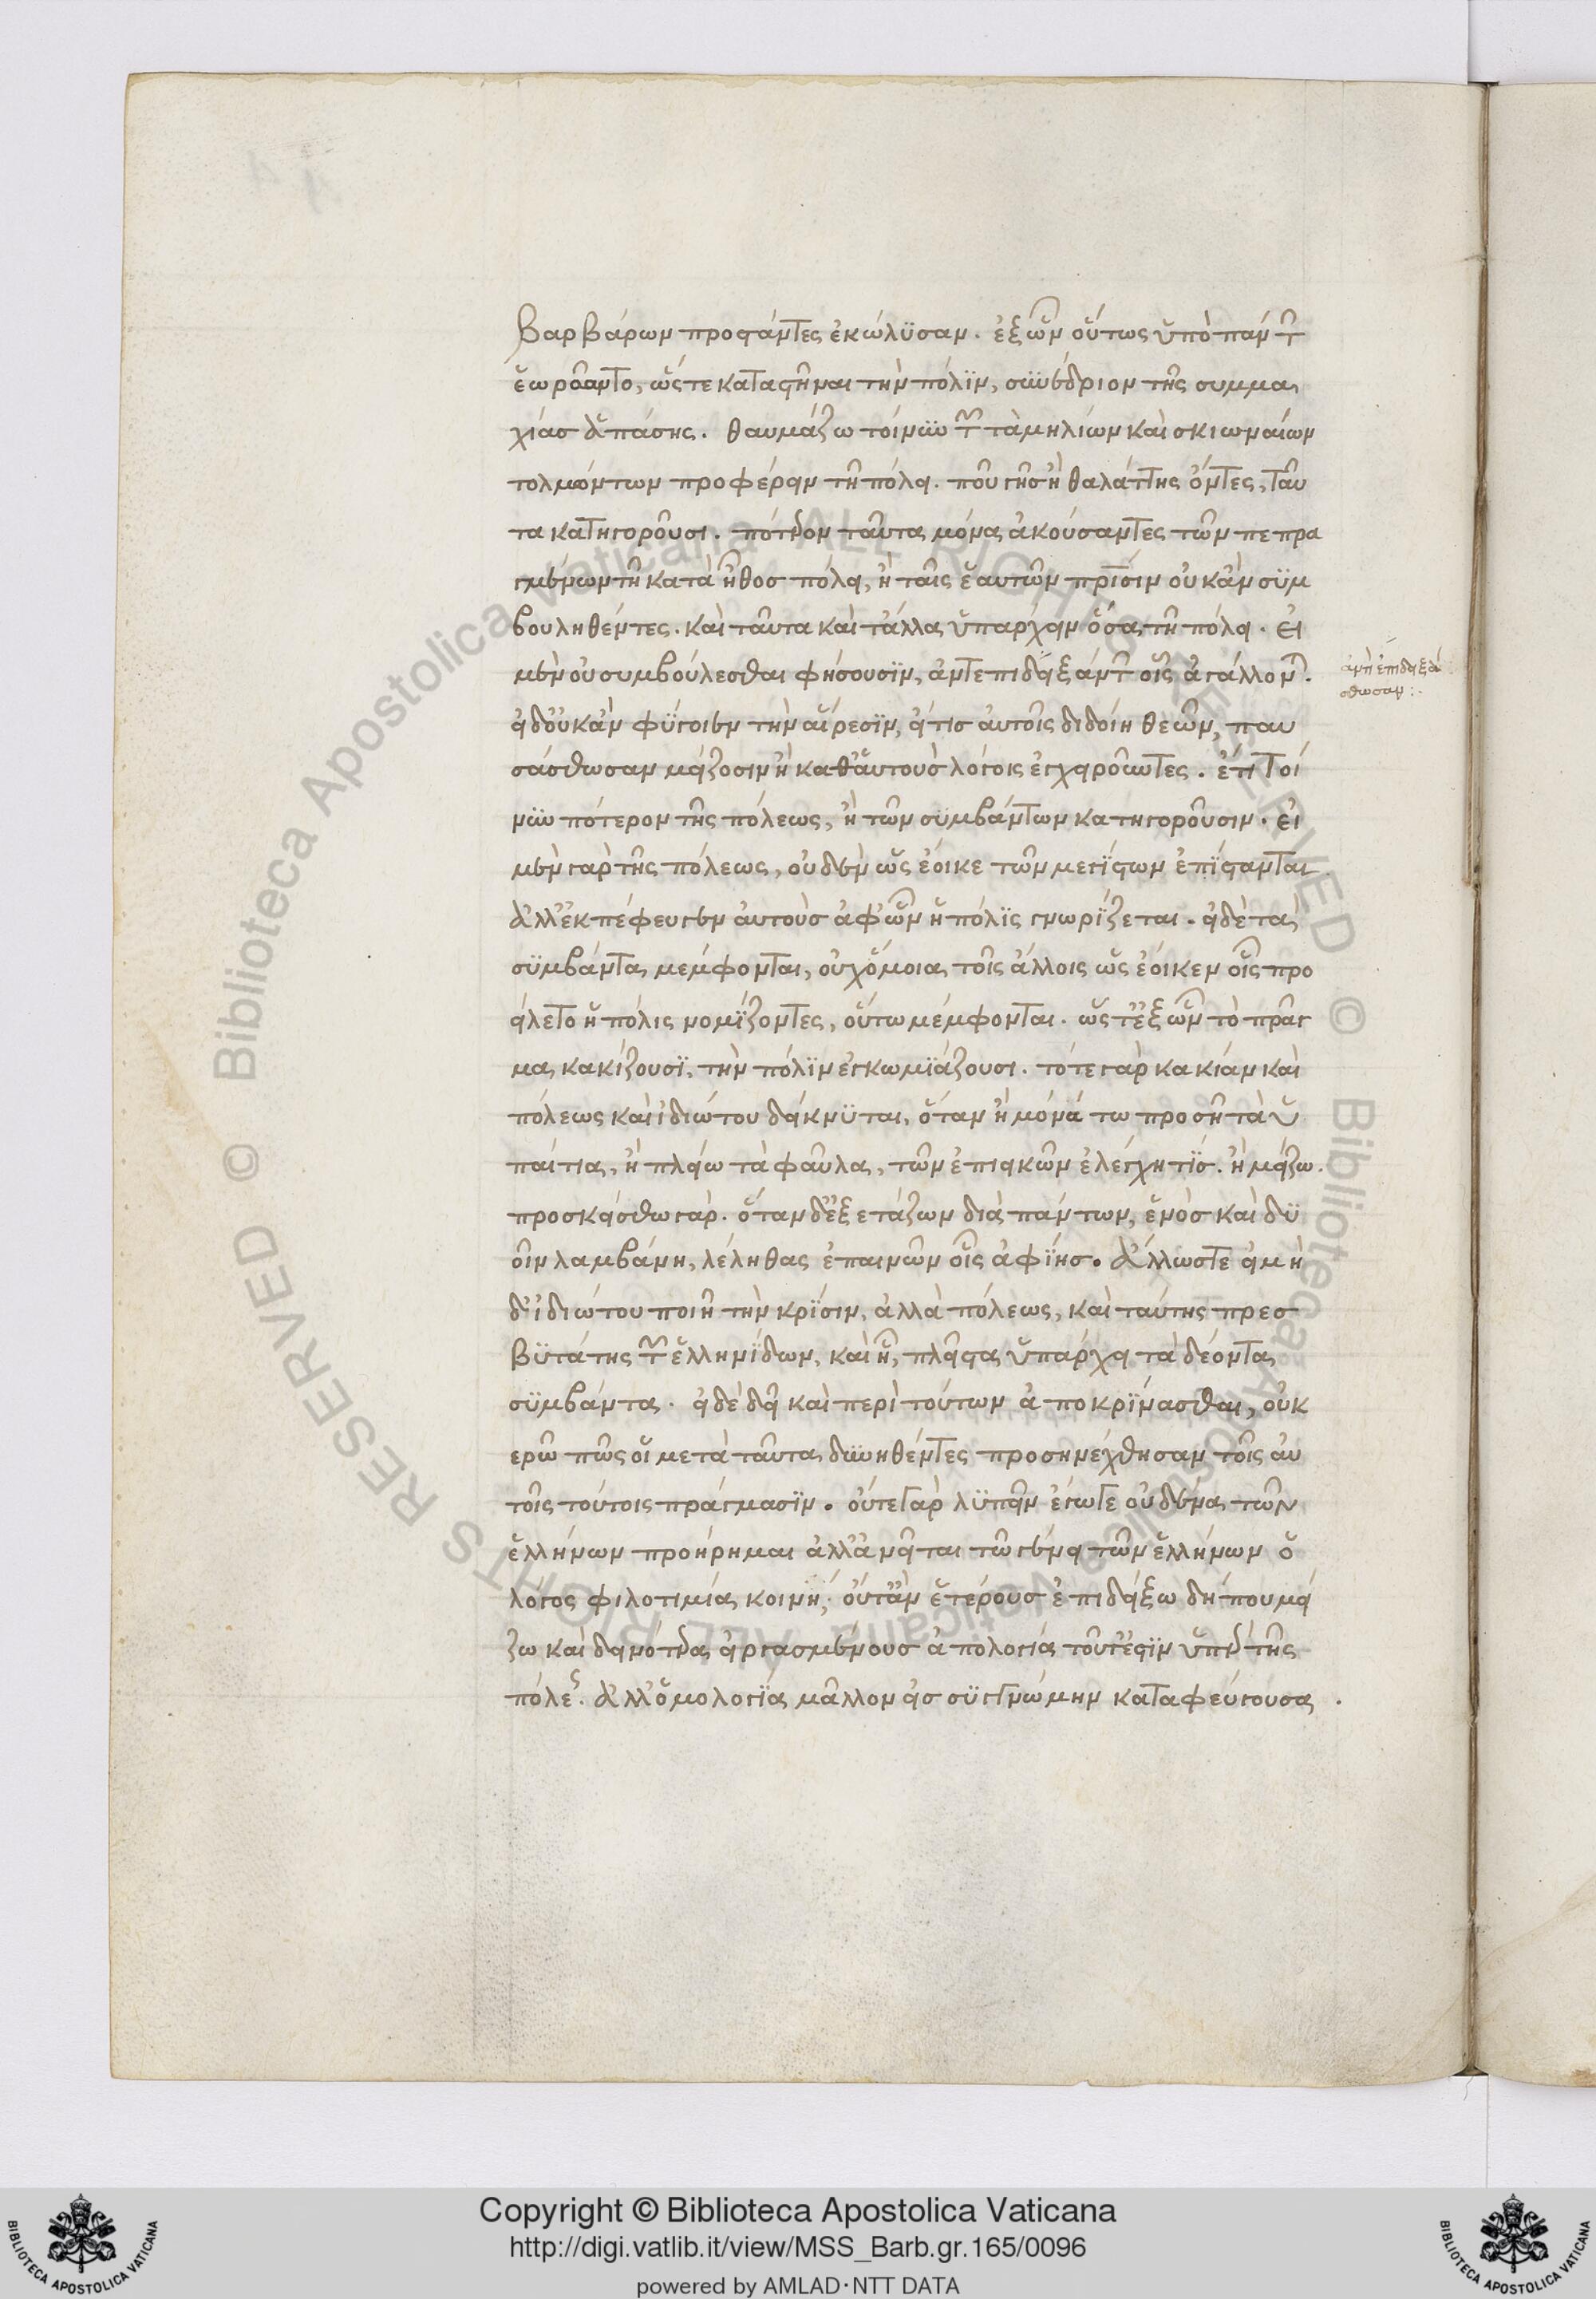 βαρβάρων προστάντες ἐκώλϋσαν. ἐξὧν οὕτως ὑπὸ πάντ
ἑωρῶντο, ὥστε καταστῆναι τὴν πόλϊν, συνέδριον τῆς συμμα
χίασ ἁπάσης. θαυμάζω τοίνυν τῶν τὰ μηλίων καὶ σκιωναίων
τολμώντων προφέρειν τῆ πόλει. ποῦ γῆσ ἢ θαλάττης ὄντες, ταῦ
τα κατηγοροῦσι. πότερον ταῦτα μόνα ἀκούσαντες τῶν πεπρα
γμένων τῆ κατὰ ἦθοσ πόλει, ἢ ταῖς ἑαυτῶν πρίσιν οὐκἂν συμ
βουληθέντες. καὶ ταῦτα καὶ τἄλλα ὑπαρχειν ὅσα τῆ πόλει. εἰ
μὲν οὐ συμβούλεσθαι φήσουσϊν, ἀντεπιδείξάντ οἷς ἀγάλλον.
εἰδ' οὐκἂν φύγοιεν τὴν αἵρεσϊν, εἴτισ αὐτοῖς διδοίη θεῶν, παυ
σάσθωσαν μείζοσιν ἢ καθ' ἁυτοὺσ λόγοις ἐγχειροῦντες. ἔτι τοί
νυν πότερον τῆς πόλεως, ἢ τῶν σϋμβάντων κατηγοροῦσιν. εἰ
μὲν γὰρ τῆς πόλεως, οὐδὲν ὡς ἔοικε τῶν μεγίστων ἐπίστανται
ἀλλ' ἐκπέφευγεν ἀυτοὺσ ἀφ' ὧν ἡ πόλις γνωρίζεται. εἰδὲ τὰ
σϋμβάντα μέμφονται, οὐχ' ὅμοια τοῖς ἄλλοις ὡς ἔοικεν οἷς προ
είλετο ἡ πόλις νομίζοντες, οὕτω μέμφονται. ὥστ' ἐξὧν τὸ πρᾶγ
μα κακίζουσϊ, τὴν πόλϊν ἐγκωμϊάζουσι. τότε γὰρ κακίαν καὶ
πόλεως καὶ ἰδιώτου δείκνϋται, ὅταν ἢ μόνά τω προσῆ τὰ ὑ
παίτια, ἢ πλείω τὰ φαῦλα, τῶν ἐπιεικῶν ἐλέγχη τίσ. ἢ μείζω.
προσκείσθω γάρ. ὅταν δ' ἐξετάζων διὰ πάντων, ἑνὸσ καὶ δϋ
οῖν λαμβάνη, λέληθας ἐπαινῶν οἷς ἀφίησ. ἄλλωστε εἰ μὴ
δ' ἰδιώτου ποιῆ τὴν κρίσιν, ἀλλὰ πόλεως, καὶ ταύτης πρεσ
βϋτάτης τῶν ἑλληνίδων, καὶ ἧ, πλεῖστα ὑπάρχει τὰ δέοντα
σϋμβάντα. εἰ δὲ δεῖ καὶ περὶ τούτων ἀποκρίνασθαι, οὐκ
ερῶ πῶς οἱ μετὰ ταῦτα δυνηθέντες προσηνέχθησαν τοῖς αὐ
τοῖς τούτοις πράγμασϊν. οὔτε γὰρ λϋπεῖν ἔγωγε οὐδένα τῶν
ἑλλήνων προήρημαι ἀλλὰ νεῖται τῶ γένει τῶν ἑλλήνων ὁ
λόγος φιλοτιμία κοινή, οὔτ' ἂν ἑτέρους ἐπιδείξω δήπου μεί
ζω καὶ δεινότερα εἰργασμένουσ ἀπολογία τοῦτ' ἐστϊν ὑπὲρ τῆς
πόλε. ἀλλ' ὁμολογία μᾶλλον εἰσ συγγνώμην καταφεύγουσα.
ἀντεπιδειξά
σθωσαν: